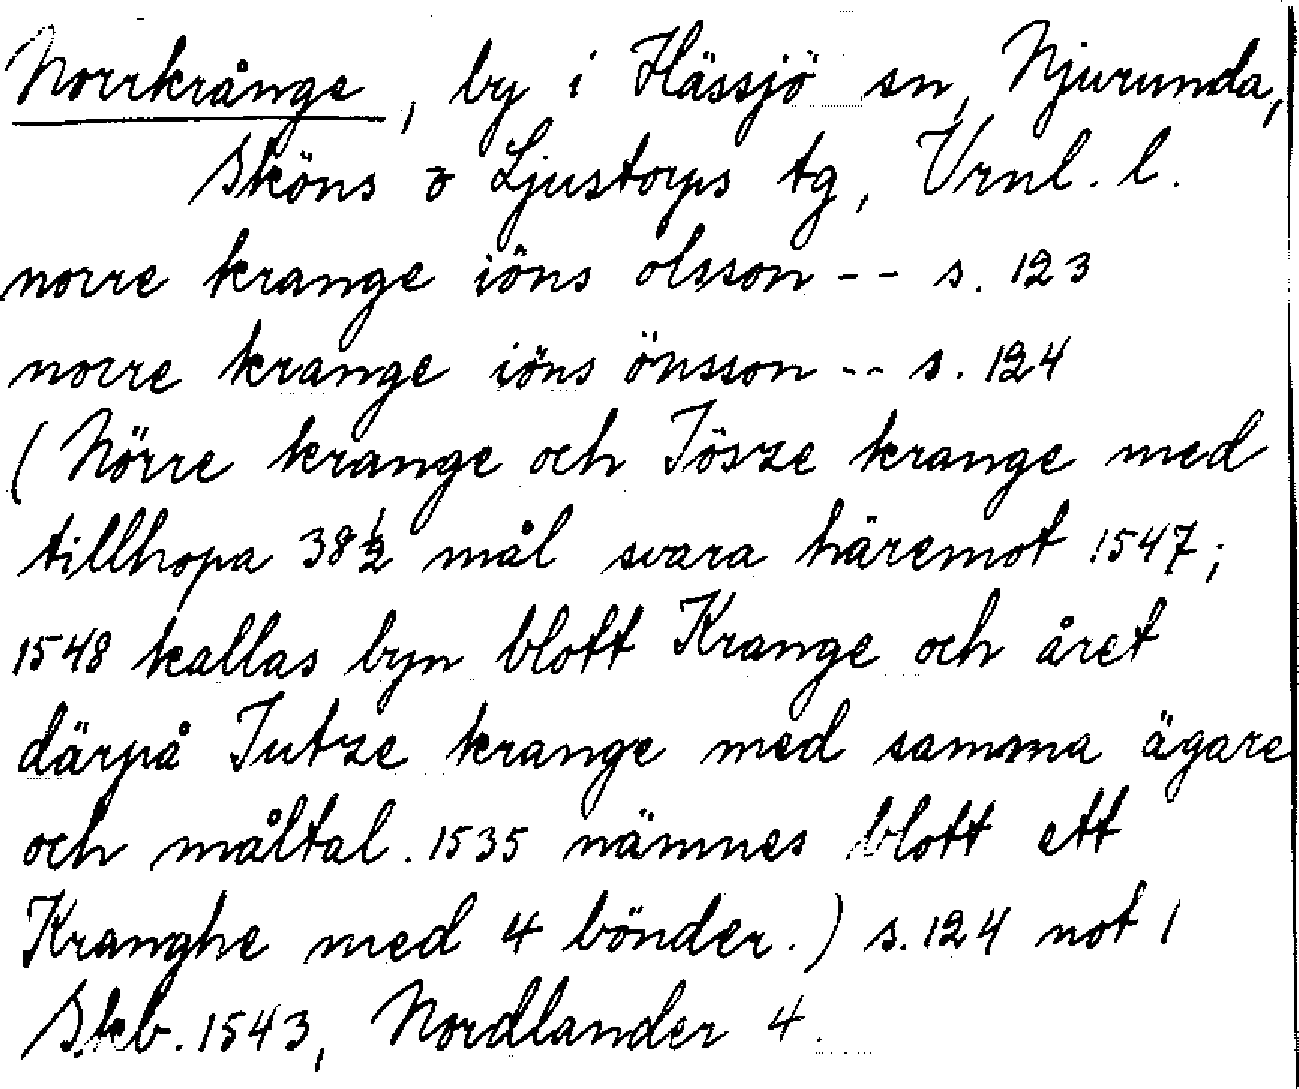 Norrkrånge, by i Hässjö sn, Njurunda,
Sköns o Ljustorps tg, Vrnl. l.
norre krange iöns olsson -- s. 123
norre krange iöns önsson -- s. 124
(Nörre krange och Jösze krange med
tillhopa 38½ mål svara häremot 1547;
1548 kallas byn blott Krange och året
därpå Jutze krange med samma ägare
och måltal. 1535 nämnes blott ett
Kranghe med 4 bönder.) s. 124 not 1
Skb. 1543, Nordlander 4.